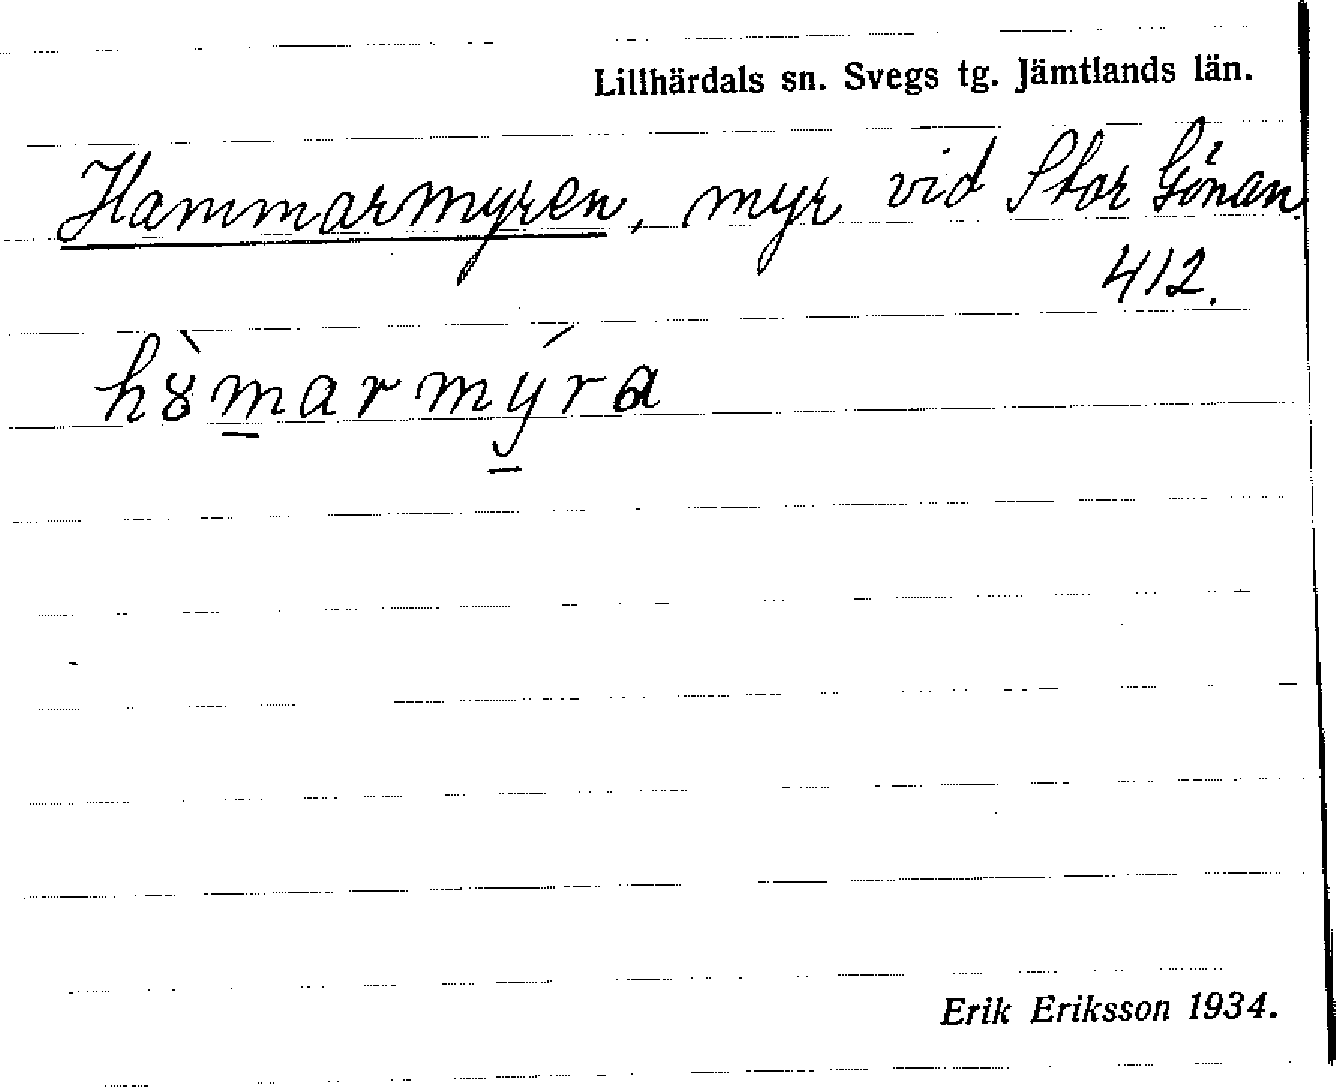 Lillhärdals sn. Svegs tg. Jämtlands län.
Hammarmyren, myr vid Stor Gönan.
412.
hȣ̀m̲armý̲ra
Erik Eriksson 1934.